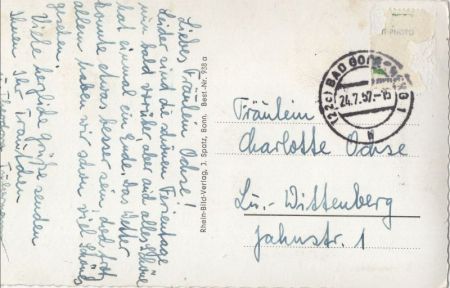 Liebes Fräulein Ochse!
Leider sind die schönen Ferientage
nun bald vorüber, aber auch alles Schöne
hat einmal ein Ende. Das Wetter
konnte etwas besser sein, doch trotz
allem haben wir schon viel Schönes
gesehen.
Viele herzliche Grüße senden
Ihnen Ihr Frautchen
Rhein-Bild-Verlag, J. Spatz, Bonn. Best.-Nr. 938 a
-PHOTO
(22c) BAD GODESBERG 1
24.7.57.-15
Fräulein
Charlotte Ochse
Lu.-Wittenberg
Jahnstr. 1